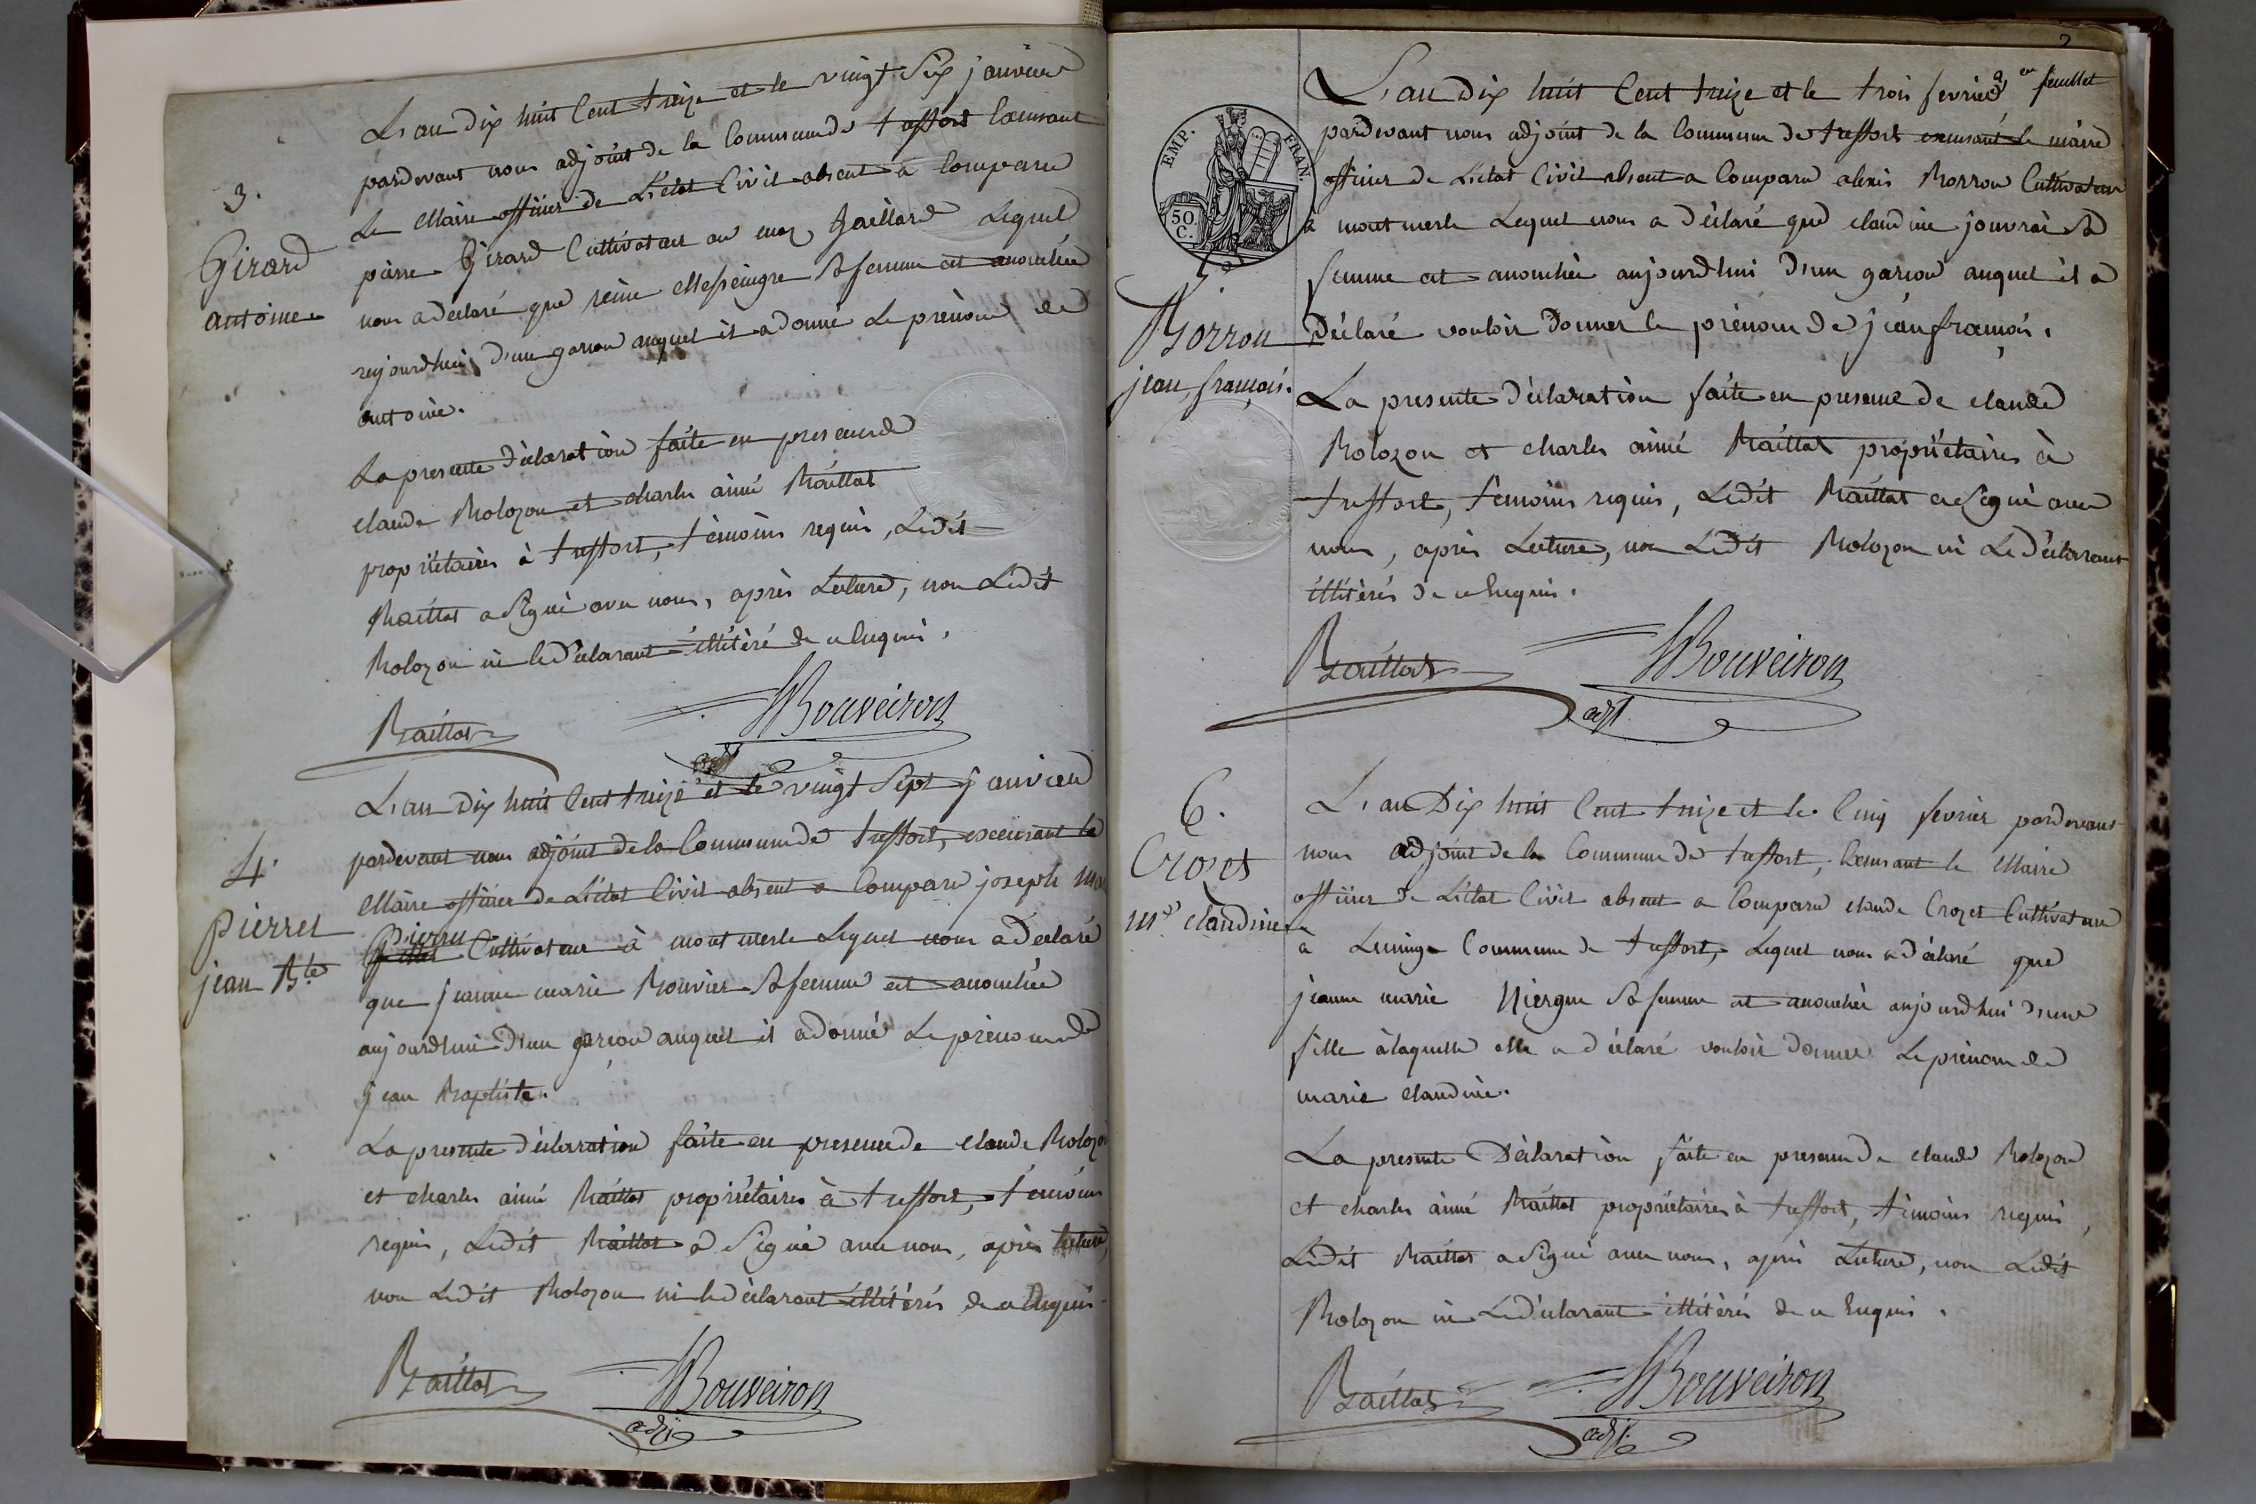 3.
Girard
antoine
L'an dix huit Cent treize et le vingt Six janvier
pardevant nous adjoint de la Commune de treffort Exercant
Le Maire officier de L'état Civil absent a Comparu
pierre Girard Cultivateur au mas Gaillard Lequel
nous a declaré que reine Messeingre Sa femme est accouchée
aujourdhui d'un garcon auquel il a donné Le prénom de
antoine.
La presente déclaration faite en presence de
claude Bolozon et charles aimé Raillat
propriétaires à treffort, témoins requis, Ledit
Raillat a Signé avec nous, après Lecture, non Ledit
Bolozon ni le déclarant illitéré de ce Enquis.
Raillat
Bouveiron
adjt
4.
Pierret
jean Bte
L'an Dix huit Cent treize et le vingt Sept janvier
pardevant nous adjoint de la Commune de treffort, excercant le
Maire officier de L'état Civil absent a Comparu joseph
Cultivateur à montmerle Lequel nous a declaré
que jeanne marie Bouvier Sa femme est accouchée
aujourdhui d'un garcon auquel il a donné Le prénom de
jean Baptiste.
La presente déclaration faite en presence de claude Bolozon
et charles aimé Raillat propriétaires à treffort, témoins
requis, Ledit Raillat a Signé avec nous, après lecture,
non Ledit Bolozon ni le déclarant illitérés de ce Enquis.
Raillat
Bouveiron
adjt
2
eme feuillet
EMP. FRAN.
50 C.
5.
Borron
jean françois.
L'an Dix huit Cent treize et le trois fevrier
pardevant nous adjoint de la Commune de treffort exercant le maire
officier de L'état Civil absent a Comparu alexis Borron Cultivateur
à montmerle Lequel nous a déclaré que claudine jouvrai Sa
femme est accouchée aujourdhui d'un garcon auquel il a
Déclaré vouloir Donner le prénom de jean françois.
La presente déclaration faite en presence de claude
Bolozon et charles aimé Raillat propriétaires à
treffort, témoins requis, Ledit Raillat a Signé avec
nous, après Lecture, non Ledit Bolozon ni Le déclarant
illitérés de ce Enquis.
Raillat
Bouveiron
adjt
6.
Crozet
me claudine
L'an Dix huit Cent treize et le Cinq fevrier pardevant
nous adjoint de la Commune de treffort, Exercant le Maire
officier de L'état Civil absent a Comparu claude Crozet Cultivateur
a Lucinge Commune de treffort, Lequel nous a déclaré que
jeanne marie Niergue Sa femme est accouchée aujourdhui d'une
fille àlaquelle elle a déclaré vouloir donner Le prénom de
marie claudine.
La presente Déclaration faite en presence de claude Bolozon
et charles aimé Raillat propriétaires à treffort, témoins requis,
Ledit Raillat a Signé avec nous, après Lecture, non Ledit
Bolozon ni Le déclarant illitérés de ce Enquis.
Raillat
Bouveiron
adjt